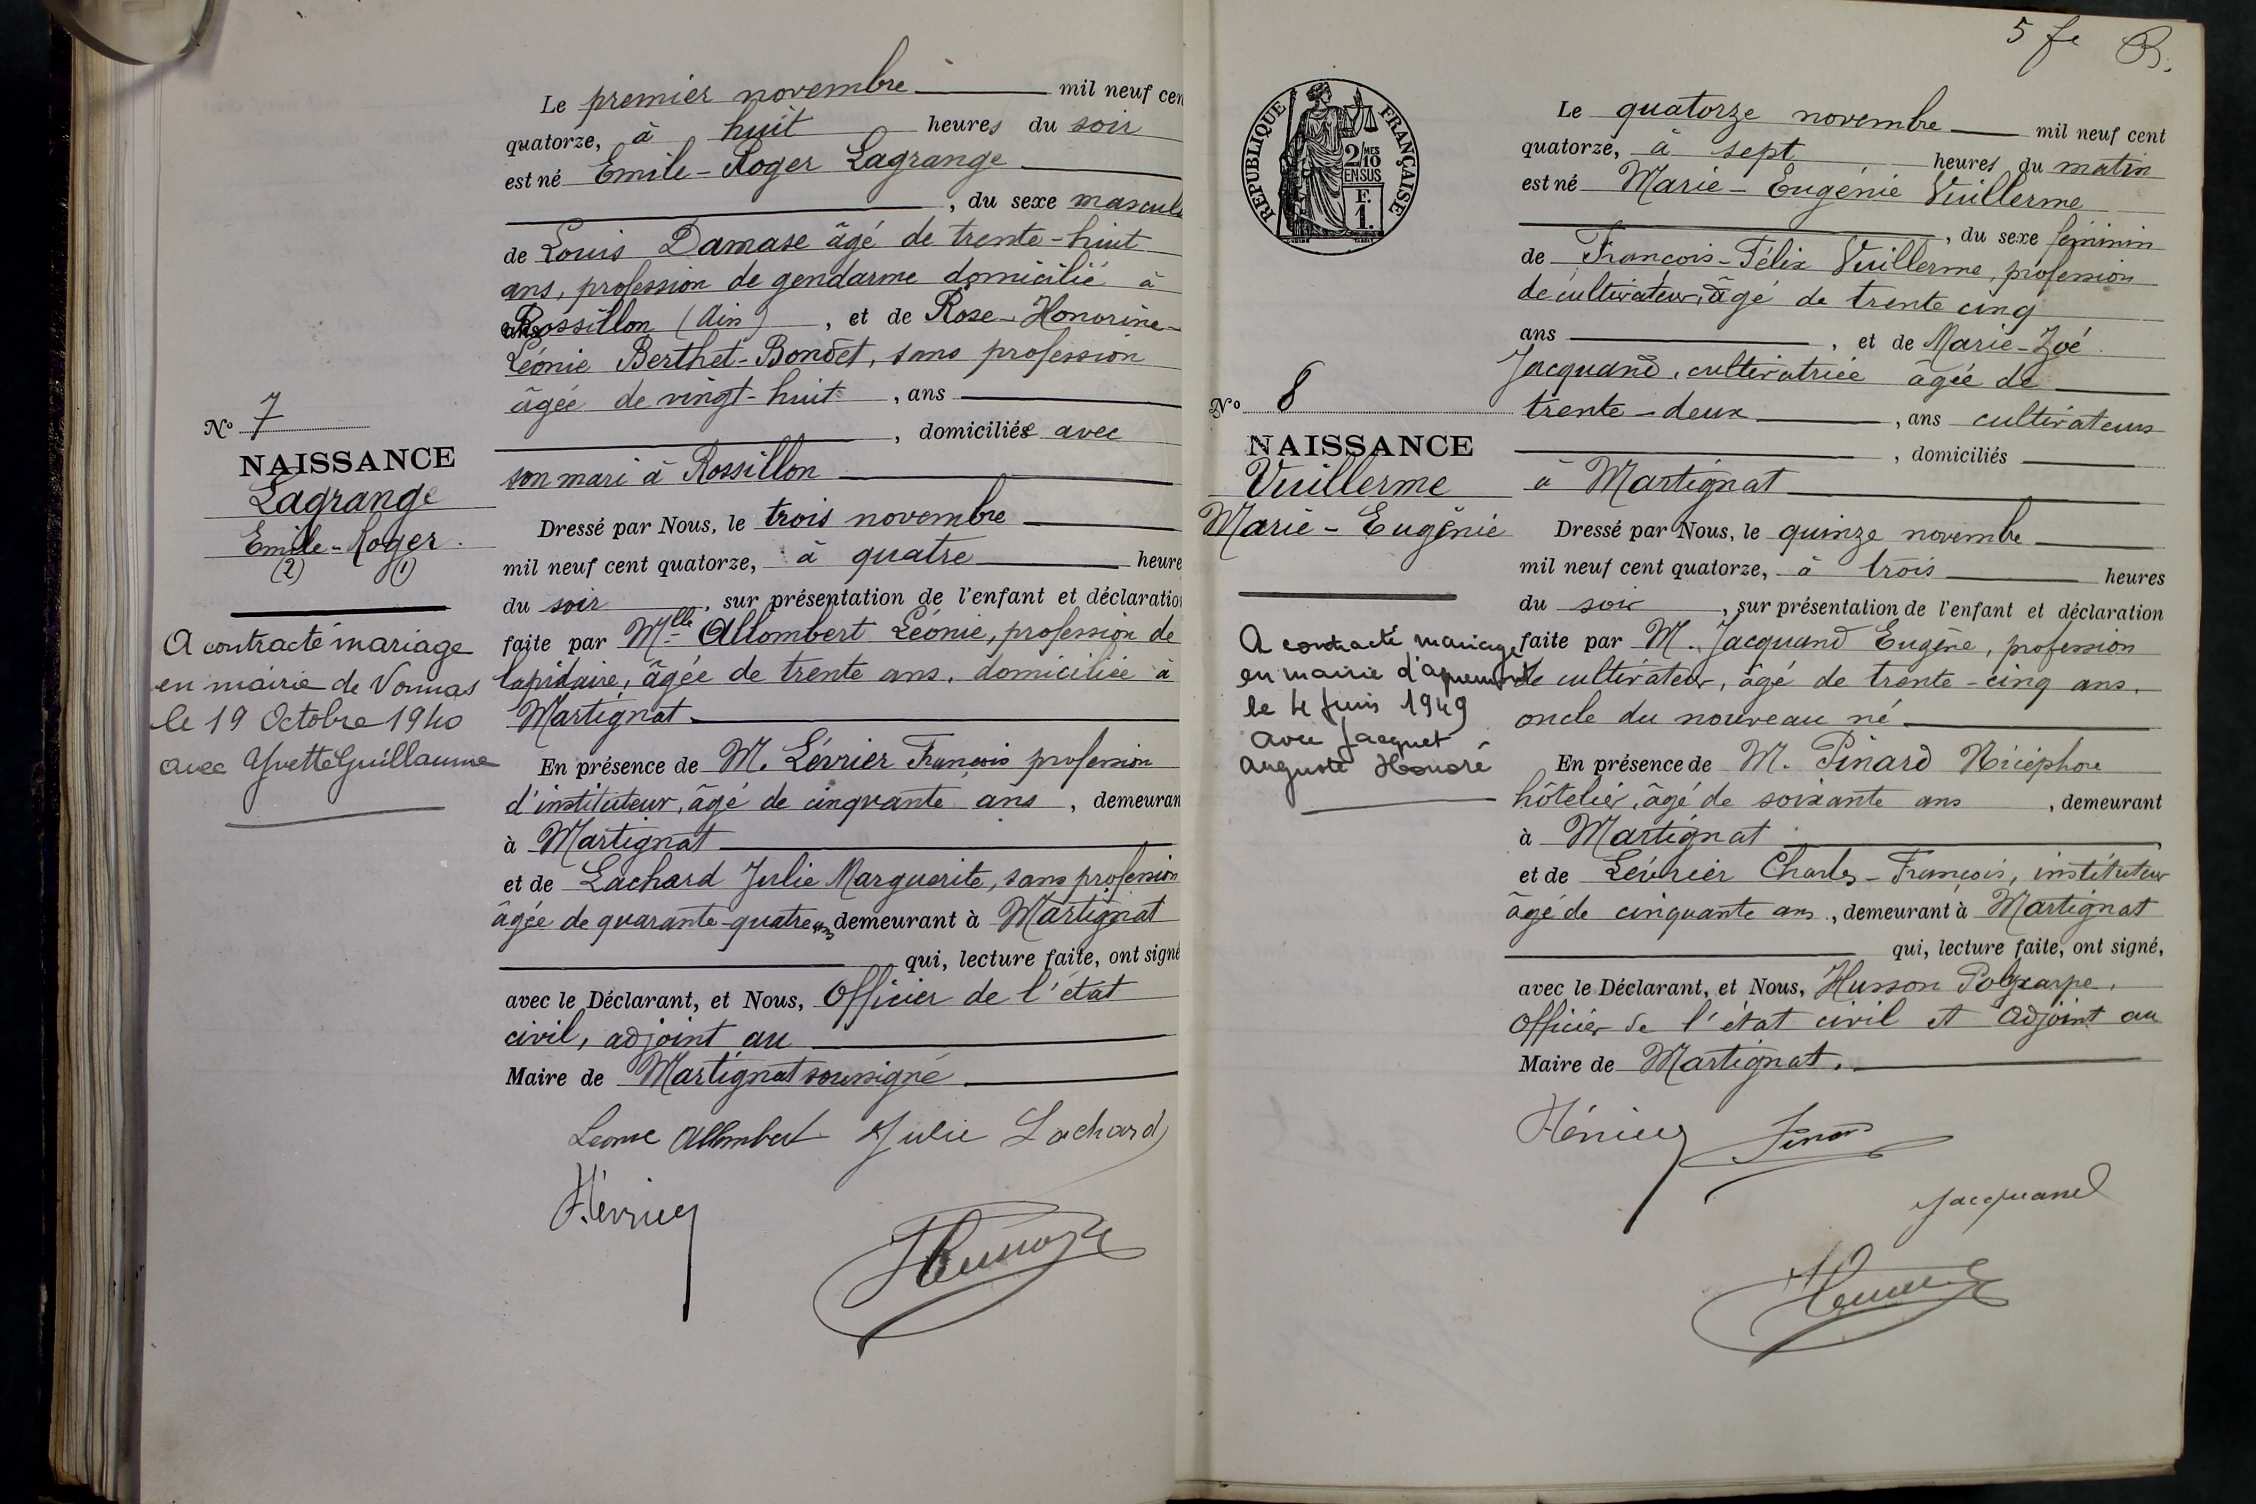 Le premier novembre mil neuf cen
quatorze, à huit heures du soir
est né Emile-Roger Lagrange
, du sexe mascul
de Louis Damase âgé de trente-huit
ans, profession de gendarme domicilié à
Rossillon (Ain), et de Rose-Honorine-
Léonie Berthet-Bondet, sans profession
âgée de vingt-huit, ans
, domiciliés avec
son mari à Rossillon
Dressé par Nous, le trois novembre
mil neuf cent quatorze, à quatre heure
du soir, sur présentation de l'enfant et déclaratio
faite par Mlle Allombert Léonie, profession de
lapidaire, âgée de trente ans, domiciliée à
Martignat
En présence de M. Lévrier François profession
d'instituteur, âgé de cinquante ans, demeuran
à Martignat
et de Lachard Julie Marguerite, sans profession
âgée de quarante-quatre ans demeurant à Martignat
qui, lecture faite, ont signé
avec le Déclarant, et Nous, Officier de l'état
civil, adjoint au
Maire de Martignat soussigné
Leonie Allombert Julie Lachard
No 7
NAISSANCE
Lagrange
Emile-Roger
(2) (1)
A contracté mariage
en mairie de Vonnas
le 19 Octobre 1940
avec Yvette Guillaume
5 fe B.
REPUBLIQUE FRANÇAISE
2/10 MES
EN SUS
F.
1.
Le quatorze novembre mil neuf cent
quatorze, à sept heures du matin
est né Marie-Eugénie Vuillerme
, du sexe féminin
de François-Félix Vuillerme, profession
de cultivateur, âgé de trente cinq
ans, et de Marie-Zoé
Jacquand, cultivatrice âgée de
trente-deux, ans cultivateurs
, domiciliés
à Martignat
Dressé par Nous, le quinze novembre
mil neuf cent quatorze, à trois heures
du soir, sur présentation de l'enfant et déclaration
faite par M. Jacquand Eugène, profession
de cultivateur, âgé de trente-cinq ans,
oncle du nouveau né
En présence de M. Pinard Nicéphore
hôtelier, âgé de soixante ans, demeurant
à Martignat
et de Lévrier Charles-François, instituteur
âgé de cinquante ans, demeurant à Martignat
qui, lecture faite, ont signé,
avec le Déclarant, et Nous, Husson Polycarpe,
Officier de l'état civil et Adjoint au
Maire de Martignat.
Jacquand
No 8
NAISSANCE
Vuillerme
Marie-Eugénie
A contracté mariage
en mairie d'apremont
le 4 Juin 1949
avec Jacquet
Auguste Honoré